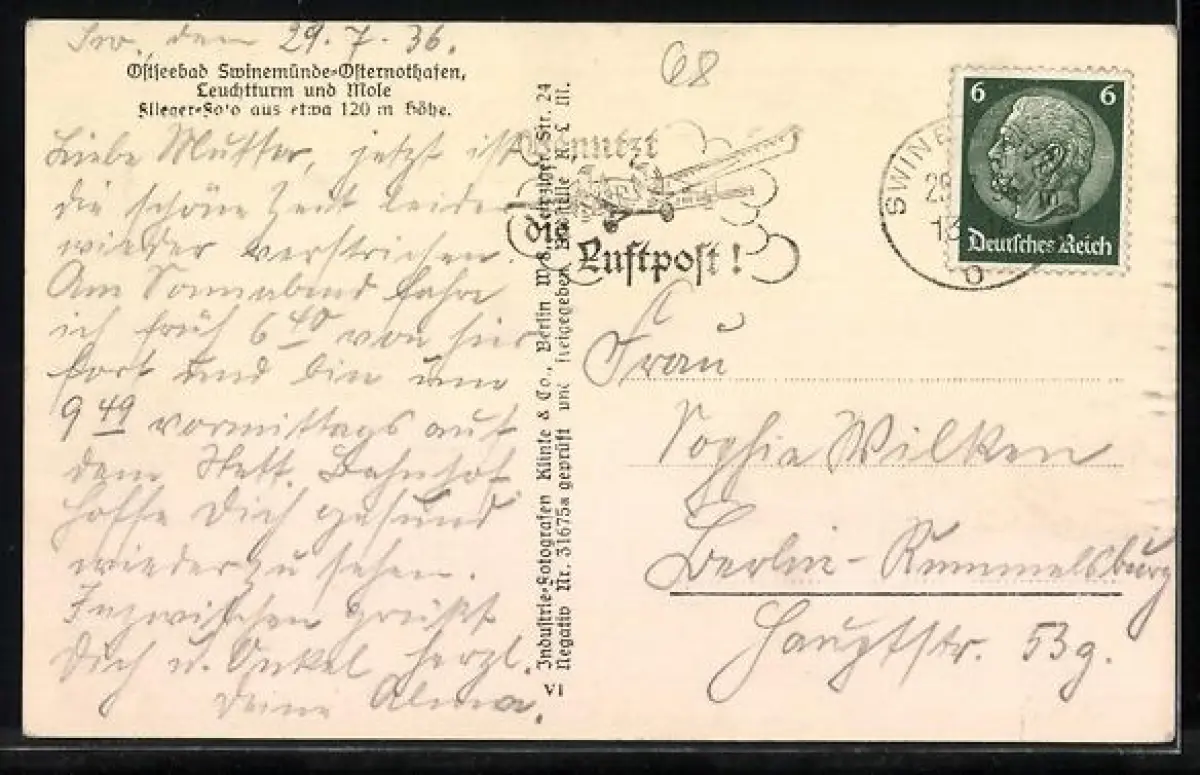 Sw. den 29.7.36.
Ostseebad Swinemünde-Osternothafen,
Leuchtturm und Mole
Flieger-Foto aus etwa 120 m Höhe.
Liebe Mutter, jetzt ist
die schöne Zeit leider
wieder verstrichen.
Am Sonnabend fahre
ich früh 6 40 von hier
fort und bin um
9 49 vormittags auf
dem Stett. Bahnhof
Hoffe Dich gesund
wiederzusehen.
Inzwischen grüßt
Dich u. Onkel herzl.
Deine Alma.
Industrie-Fotografen Klinke & Co., Berlin W 8, Leipziger Str. 24
Negativ Nr. 31675a geprüft und freigegeben R. L. M.
VI
68
Benutzt
die
Luftpost!
SWINE
29
6 6
Deutsches Reich
Frau
Sophia Wilken
Berlin-Rummelsburg
Hauptstr. 53g.